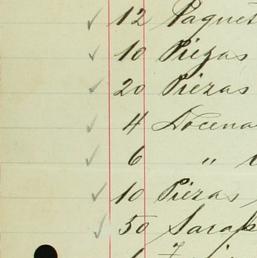 12 Paquet
10 Piezas
20 Piezas
4 Docena
6 "
10 Piezas
50 Sarap